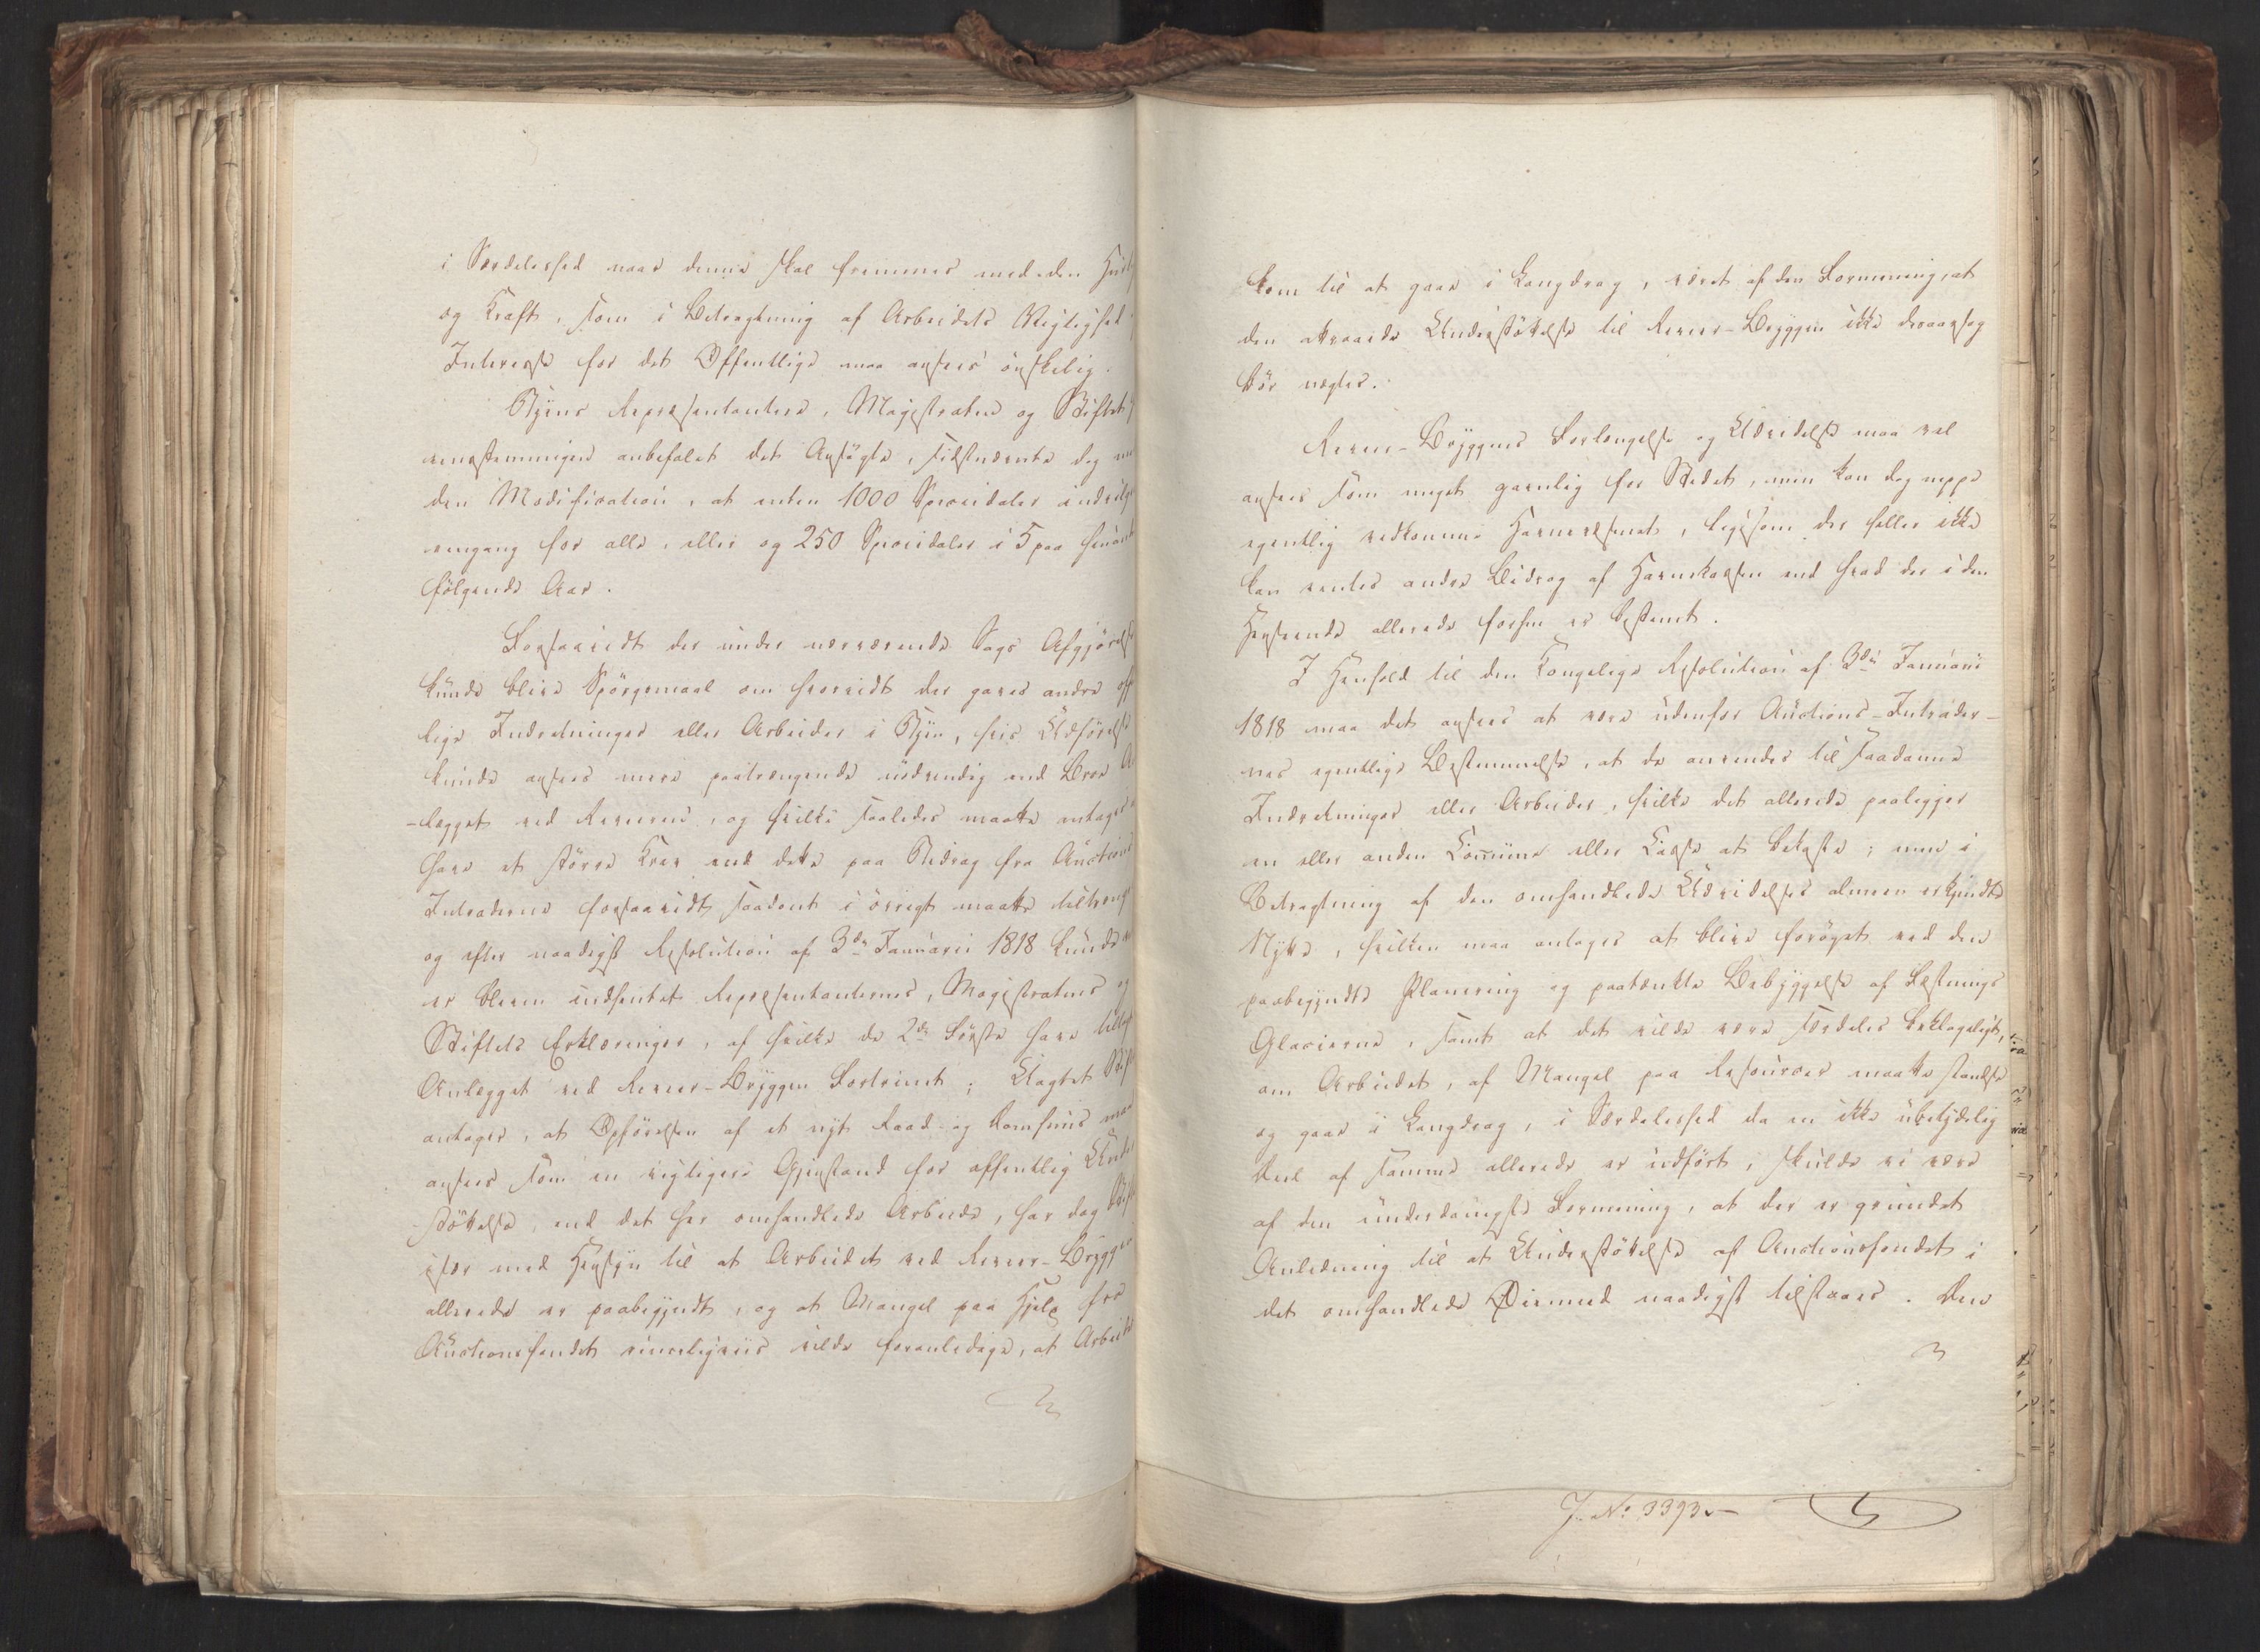 i Særdeleshed naar denne skal fremmes med den
og Kraft, som i Betragtning af Arbeidets Vigtighed
Interesse for det Offentlige maa ansees ønskelig.
Byens Repræsentantere, Magistraten og Stiftet
eenstemmigen anbefalet det Ansøgte, sidstnævnte dog
den Modification, at enten 1000 Speciedaler
eengang for alle, eller og 250 Speciedaler i 5 paa
følgende Aar.
Forsaavidt der under nærværende Sags Afgjørelse
kunde blive Spørgsmaal om hvorvidt der gaves andre
lige Indretninger eller Arbeider i Byen, hvis Udførelse
kunde ansees mere paatrængende nødvendig end
-lægget ved Revieren, og hvilke saaledes maatte antages
have et større Krav end dette paa Bidrag fra Auctions
Intraderne forsaavidt saadant i øvrigt maatte
og efter naadigst Resolution af 3de Januarii 1818 kunde
er bleven indhentet Repræsentanternes, Magistratens og
Stiftets Erklæringer, af hvilke de 2de Første have
Anlægget ved Revier-Bryggen Fortrinet; Uagtet
antager, at Opførelsen af et nyt Raad- og Domhuus maa
ansees som en vigtigere Gjenstand for offentlig
-støttelse, end det her omhandlede Arbeide, har dog
især med Hensyn til at Arbeidet ved Revier-Bryggen
allerede er paabegyndt, og at Mangel paa Hjelp fra
Auctionsfondet rimeligviis vilde foranledige, at Arbeidet
kom til at gaae i Langdrag, været af den Formening, at
den attraaede Understøttelse til Revier-Bryggen ikke desaarsag
bør nægtes.
Revier-Bryggens Forlængelse og Udvidelse maa vel
ansees som meget gavnlig for Stedet, men kan dog neppe
egentlig vedkomme Havnevæsenet, ligesom der heller ikke
kan ventes andre Bidrag af Havnekassen end hvad der i den
Henseende allerede forhen er bestemt.
I Henhold til den Kongelige Resolution af 3die Januarii
1818 maa det ansees at være udenfor Auctions-Intrader-
nes egentlige Bestemmelse, at de anvendes til saadanne
Indretninger eller Arbeider, hvilke det allerede paaligger
en eller anden Comune eller Casse at bekoste; men i
Betragtning af den omhandlede Udvidelses almeen erkjendte
Nytte, hvilken maa antages at blive forøget ved den
paabegyndte Planering og paatænkte Bebyggelse af Fæstnings
Glacierne, samt at det vilde være særdeles beklageligt,
om Arbeidet, af Mangel paa Resourcer maatte standse
og gaae i Langdrag, i Særdeleshed da en ikke ubetydelig
Deel af samme allerede er udført, skulde vi være
af den underdanigste Formening, at der er grundet
Anledning til at Understøttelse af Auctionsfondet i
det omhandlede Øiemed naadigst tilstaaes. Den
J. No 3393.